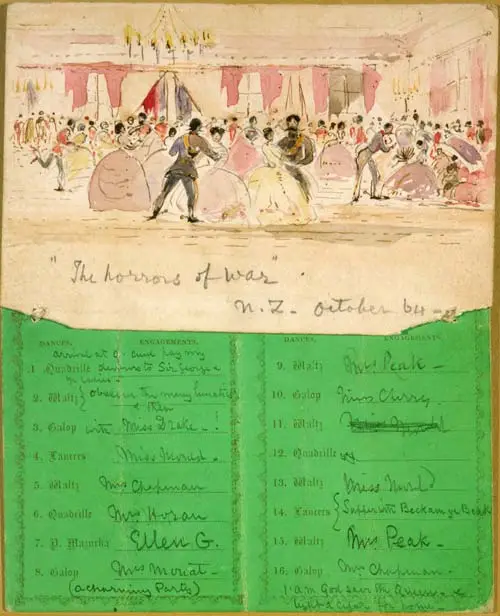 "The horrors of war".
N.Z. - October 64 -
DANCES, ENGAGEMENTS.
arrived at 9. and pay my
1. Quadrille devoirs to Sir George &
2. Waltz } observe the many lunatics
& then
3. Galop with Miss Drake - !
4. Lancers Miss Mould.
5. Waltz Mrs Chapman
6. Quadrille Mrs Horan
7. P. Mazurka Ellen G.
8. Galop Miss
(a charming Party)
DANCES, ENGAGEMENTS.
9. Waltz Mrs Peak -
10. Galop Miss Clurry.
11. Waltz
12. Quadrille
13. Waltz Miss
14. Lancers { Supper with Beckam
15. Waltz Mrs Peak -
16. Galop Mrs Chapman.
1 a.m. God save the Queen - &
light a cigar for home -